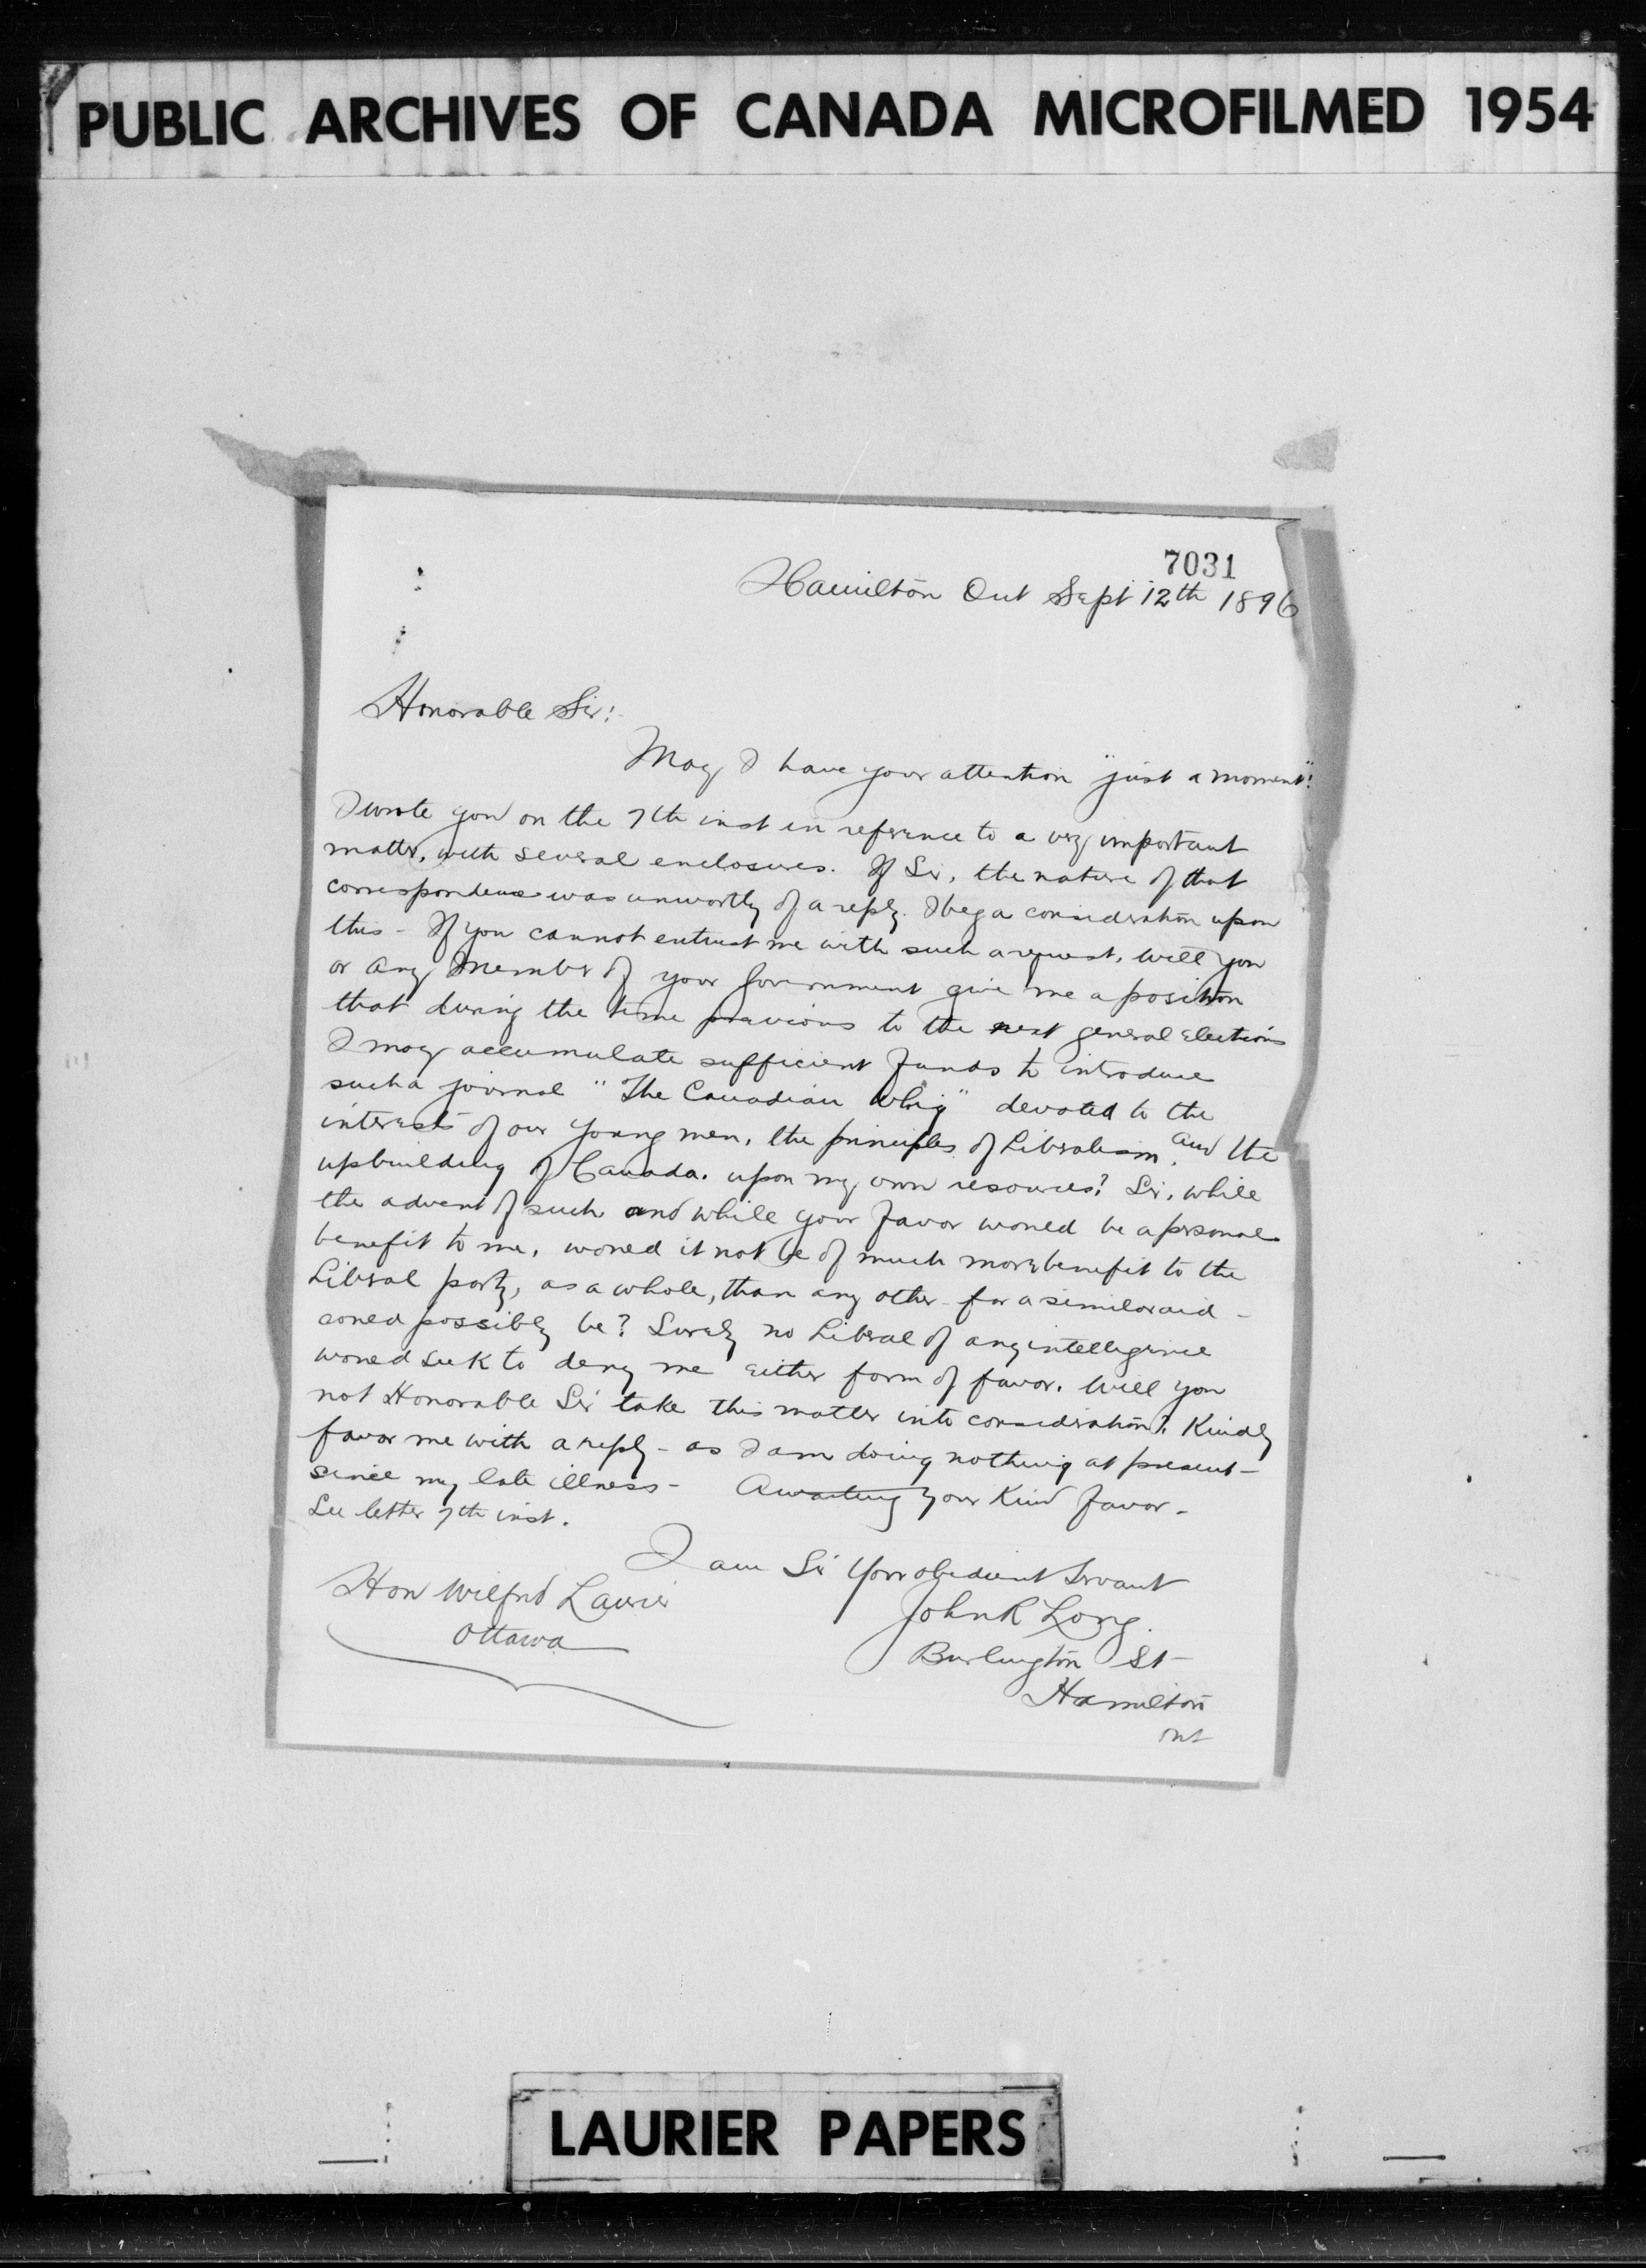 PUBLIC ARCHIVES OF CANADA MICROFILMED 1954
7031
Hamilton Ont Sept 12th 1896
Honorable Sir:
May I have your attention "just a moment"!
I wrote you on the 7th inst in reference to a very important
matter, with several enclosures. If Sir, the nature of that
correspondence was unworthy of a reply. I beg a consideration upon
this - If you cannot entrust me with such a request. Will you
or any Member of your Government give me a position
that during the time previous to the next general elections
I may accumulate sufficient funds to introduce
such a journal "The Canadian Whig" devoted to the
interests of our young men, the principles of Liberalism, and the
upbuilding of Canada. upon my own resources? Sir, while
the advent of such and while your favor would be a personal
benefit to me, would it not be of much more benefit to the
Liberal party, as a whole, than any other - for a similar aid -
could possibly be? Surely no Liberal of any intelligence
would seek to deny me either form of favor. Will you
not Honorable Sir take this matter into consideration? Kindly
favor me with a reply - as I am doing nothing at present -
since my late illness - Awaiting your Kind favor -
See letter 7th inst.
I am Sir Your obedient Servant
Hon Wilfrid Laurier
John R Long
Ottawa
Burlington St
Hamilton
Ont
LAURIER PAPERS